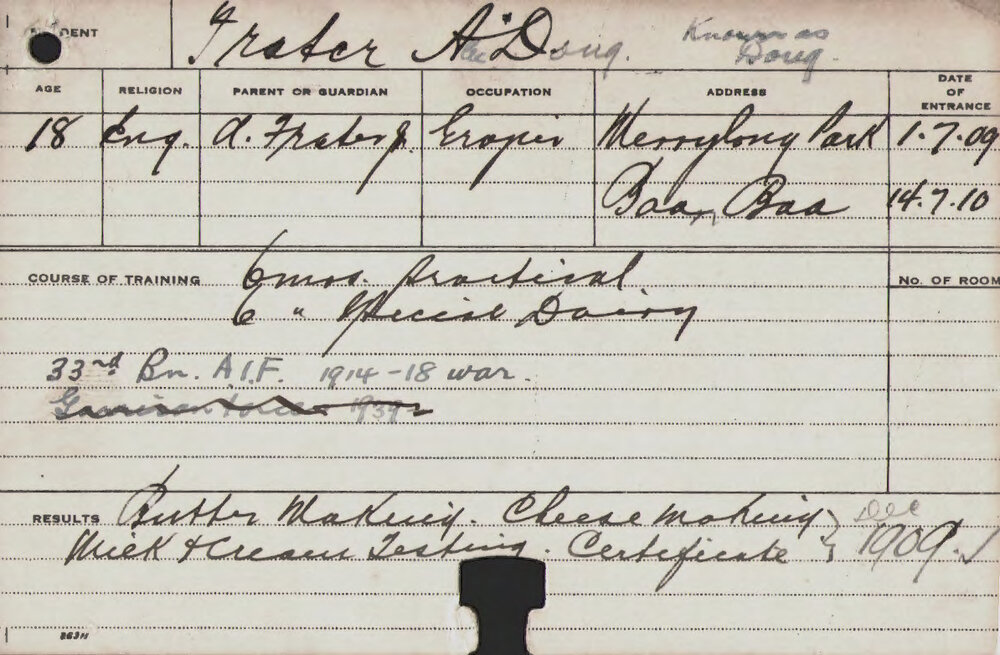 DENT Frater A. D. Doug. Known as
Doug
AGE RELIGION PARENT OR GUARDIAN OCCUPATION ADDRESS DATE OF ENTRANCE
18 Eng. A. Frater Merrylong Park 1.7.09
Baa, Baa 14.7.10
COURSE OF TRAINING 6 mos. Practical No. OF ROOM
6 " Special Dairy
33rd Bn. A.I.F. 1914-18 war.
Garrison Force 1939
RESULTS Butter Making. Cheese making } Dec
Milk & Cream Testing. Certificate } 1909.